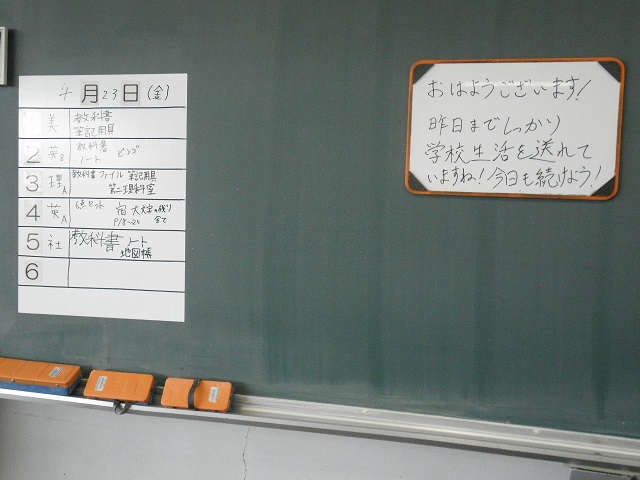 4月23日(金)
美 教科書
筆記用具
2 英B 教科書
ノート ビンゴ
3 理A 教科書 ファイル 筆記用具
第二理科室
4 英A
5 社 教科書 ノート
地図帳
6
おはようございます!
昨日までしっかり
学校生活を送れて
いますね!今日も続けよう!